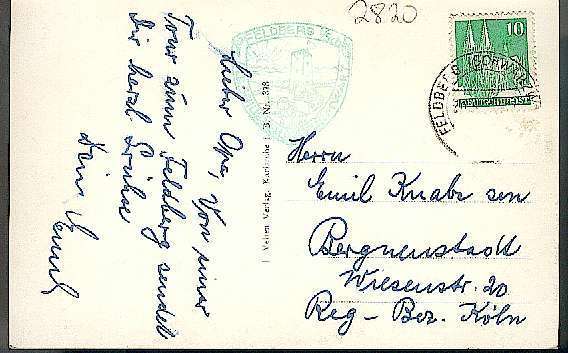 2820
FELDBERG
10
DEUTSCHE POST
FELDBERG (SCHWARZW
Lieber Opa, Von einer
Tour zum Feldberg sendet
Dir herzl. Grüße
Dein Emil
Verlag, Karlsruhe i. B. Nr. 338
Herrn
Emil Knabe sen
Bergneustadt
Wiesenstr. 20
Reg - Bez. Köln